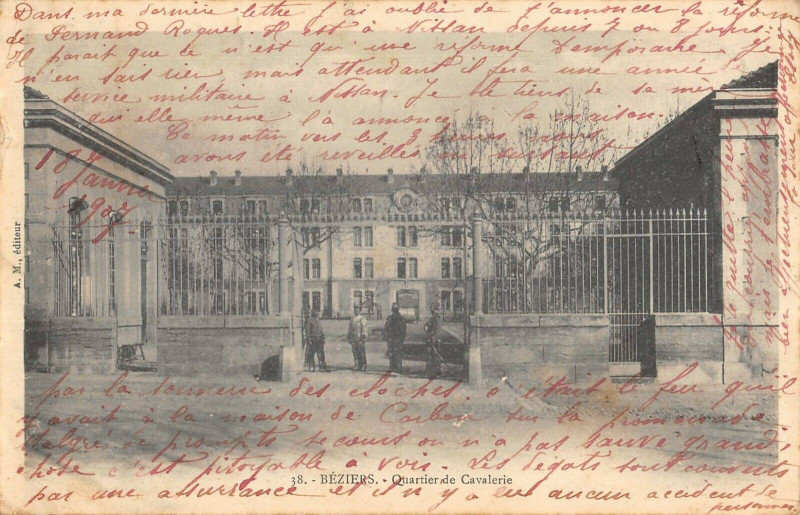 Dans ma dernière lettre j'ai oublié de t'annoncer la réforme
de Fernand Roques. Il est à Nissan depuis 7 ou 8 jours.
Il parait que ce n'est qu'une réforme temporaire. Je
n'en sais rien mais attendant il fera une année de
service militaire à Nissan. Je le tiens de sa mère
qui elle même l'a annoncé à la maison.
Ce matin vers les 3 heures nous
avons été reveillés en sursaut
18 Janvier
907
par la sonnerie des cloches. c'était le feu qu'il
y avait à la maison de Carbou sur la promenade
Malgré de prompts secours on n'a pas sauvé grand
chose c'est pitoyable à voir. Les dégats sont couverts
par une assurance et il n'y a eu aucun accident de
personnes.
A. M., éditeur
38. - BÉZIERS. - Quartier de Cavalerie